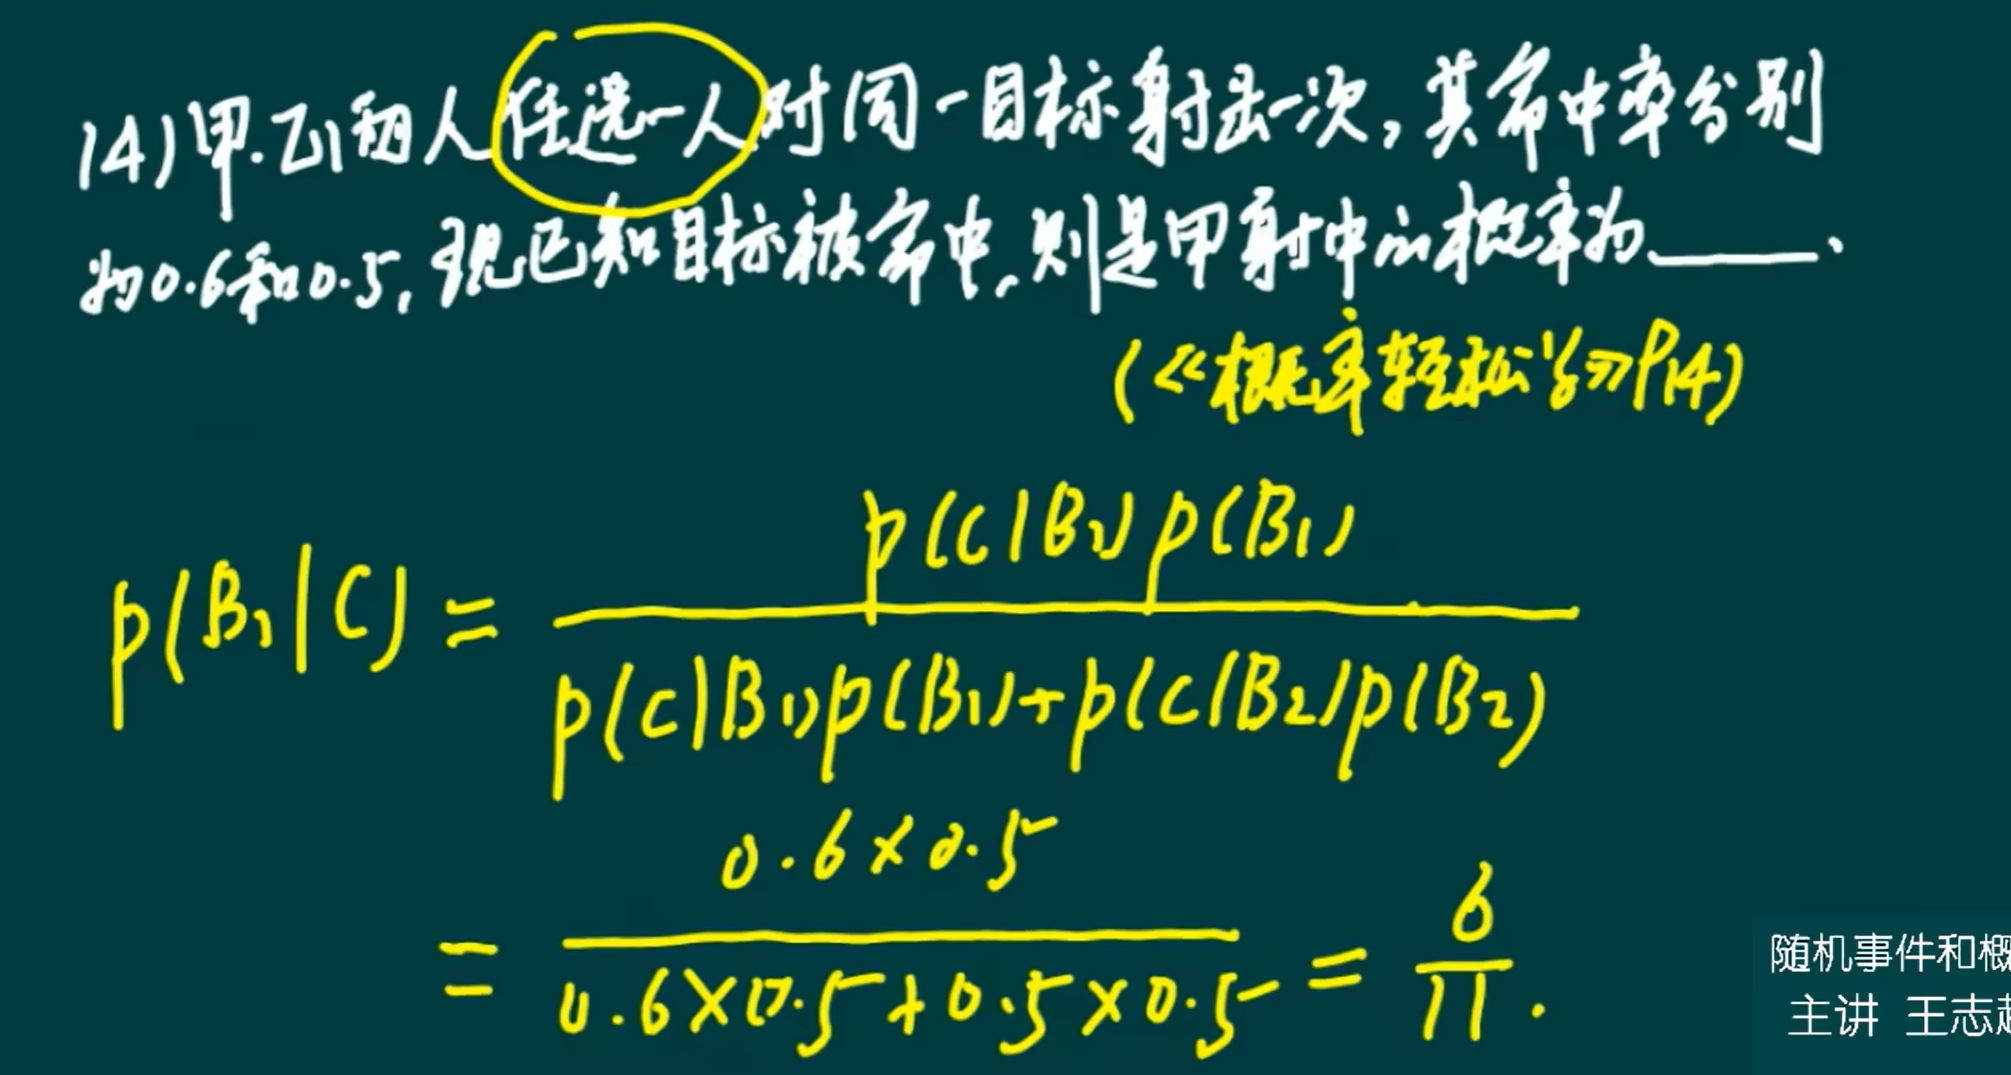 (4)甲.乙两人任选一人对同一目标射击一次,其命中率分别
为0.6和0.5,现已知目标被命中,则是甲射中的概率为____.
(《概率轻松学》P14)
p(C|B1)p(B1)
p(B1|C)=
p(C|B1)p(B1)+p(C|B2)p(B2)
0.6×0.5
6
=
=
0.6×0.5+0.5×0.5
11.
随机事件和概
主讲 王志超